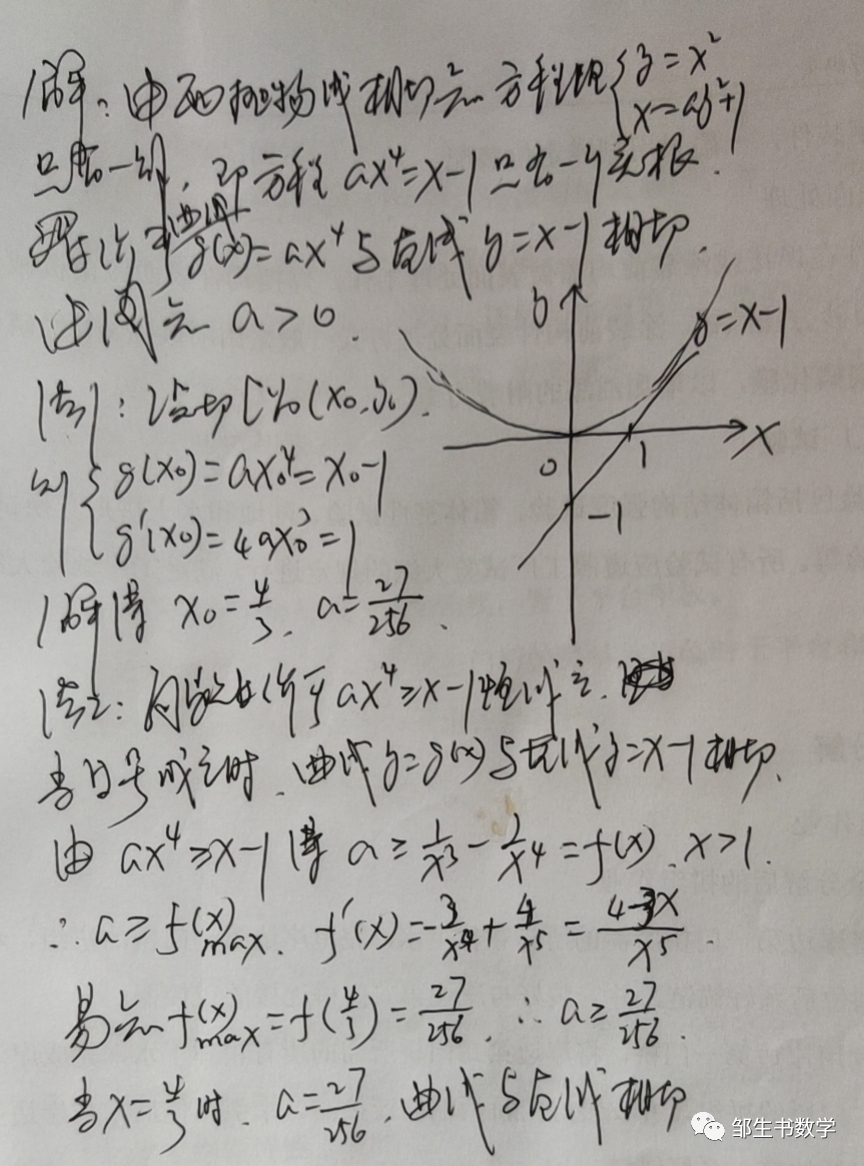 解：由两抛物线相切知方程组{y=x²
x=ay²+1
只有一解，即方程ax⁴=x-1只有一个实根.
等价于曲线g(x)=ax⁴与直线y=x-1相切.
由图知 a>0.
y
y=x-1
x
0
1
-1
法1：设切点(x₀,y₀).
则{g(x₀)=ax₀⁴=x₀-1
g'(x₀)=4ax₀³=1
解得 x₀=4/3, a=27/256.
法2：问题等价于ax⁴≥x-1恒成立.
当等号成立时，曲线y=g(x)与直线y=x-1相切.
由 ax⁴≥x-1 得 a≥1/x³-1/x⁴=f(x), x>1.
∴a≥f(x)max. f'(x)=-3/x⁴+4/x⁵=(4-3x)/x⁵.
易知f(x)max=f(4/3)=27/256. ∴a≥27/256.
当x=4/3时, a=27/256, 曲线与直线相切
邹生书数学